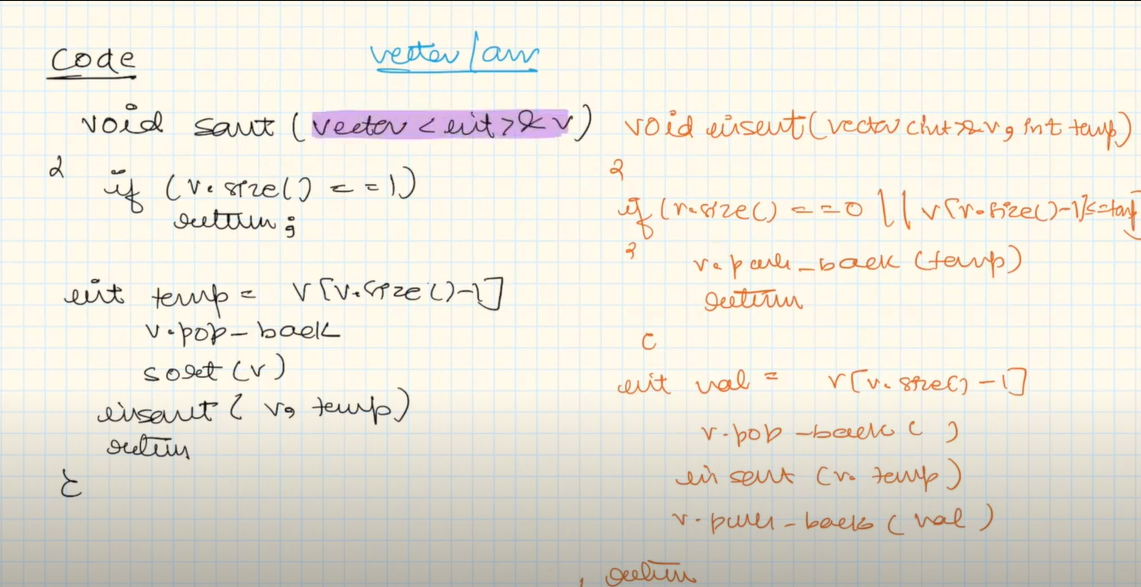 Code
vector/arr
void sort (vector <int>& v)
{
if (v.size() == 1)
return;
int temp = v[v.size()-1]
v.pop-back
sort (v)
insert ( v, temp)
return
}
void insert(vector<int>& v, int temp)
{
if (v.size() == 0 || v[v.size()-1]<=temp)
{
v.push-back (temp)
return
}
int val = v[v.size() -1]
v.pop-back ( )
insert (v. temp)
v.push-back ( val )
return